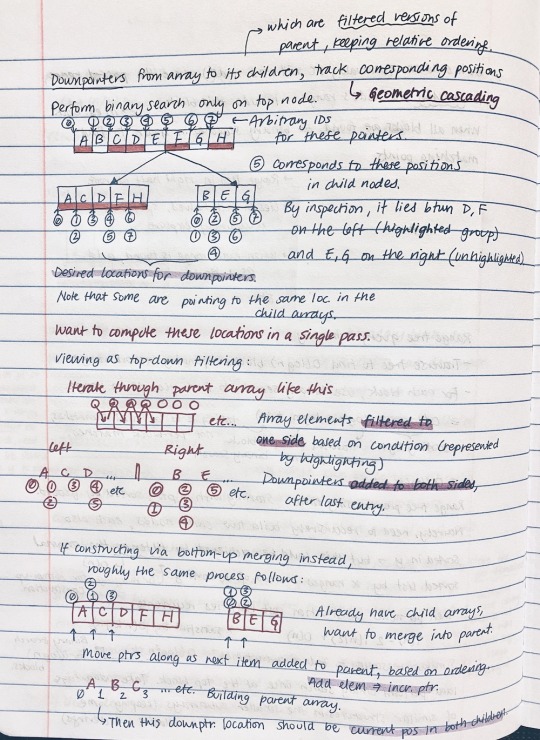 which are filtered versions of
parent, keeping relative ordering.
Downpointers from array to its children, track corresponding positions
Geometric cascading
Perform binary search only on top node.
0 1 2 3 4 5 6 7
Arbitrary IDs
for these pointers.
A B C D E F G H
5 corresponds to these positions
in child nodes.
A C D F H
B E G
0 1 3 4 6
2 5 7
0 2 5 7
1 3 6
4
By inspection, it lies btwn D, F
on the left (highlighted group)
and E, G on the right (unhighlighted)
Desired locations for downpointers.
Note that some are pointing to the same loc in the
child arrays.
Want to compute these locations in a single pass.
Viewing as top-down filtering:
Iterate through parent array like this
etc...
Array elements filtered to
one side based on condition (represented
by highlighting)
Left
Right
A C D ...
B E ...
0 1 3 4 etc
2 5
0 2 5 etc.
1 3
4
Downpointers added to both sides,
after last entry.
If constructing via bottom-up merging instead,
roughly the same process follows:
2
0 1 3
A C D F H
1 3
0 2
B E G
Already have child arrays,
want to merge into parent.
Move ptrs along as next item added to parent, based on ordering.
Add elem → incr. ptr.
0 A 1 B 2 C 3 ... etc. Building parent array.
Then this downptr. location should be current pos in both children.